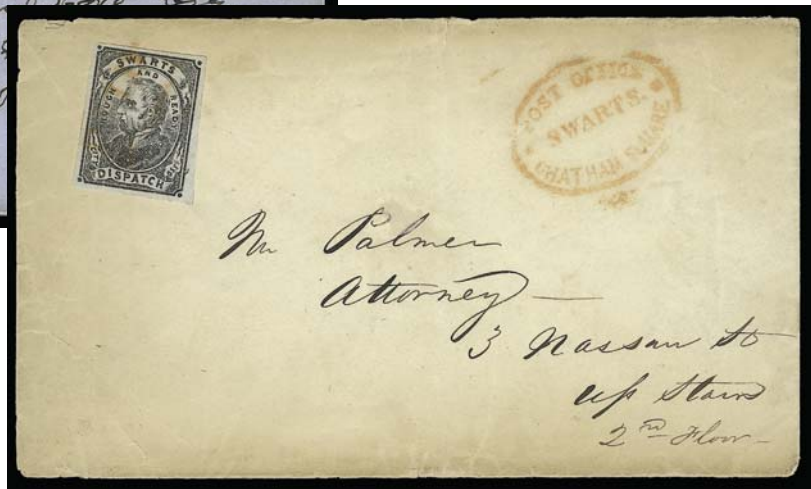 SWARTS
ROUGH AND READY
DISPATCH
POST OFFICE
SWARTS.
CHATHAM SQUARE
Mr Palmer
Attorney —
3 Nassau St
up Stairs
2nd Floor —